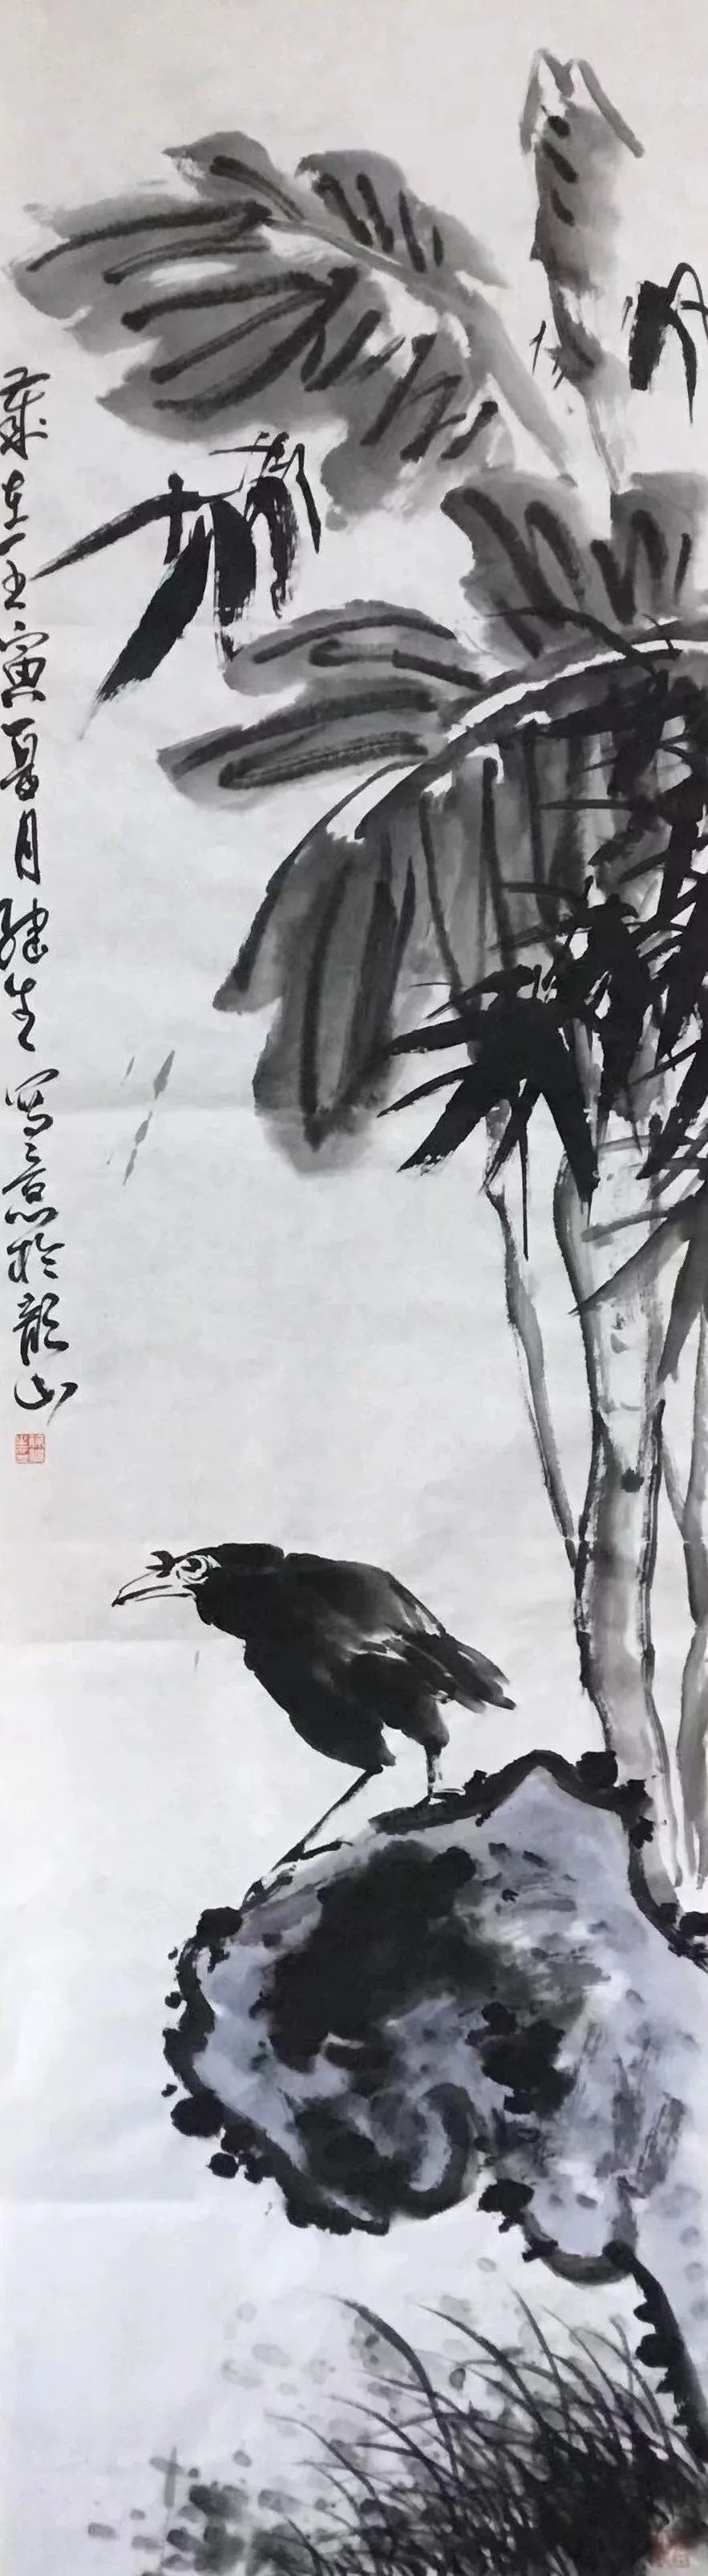 歲在壬寅夏月継生写意於龍山